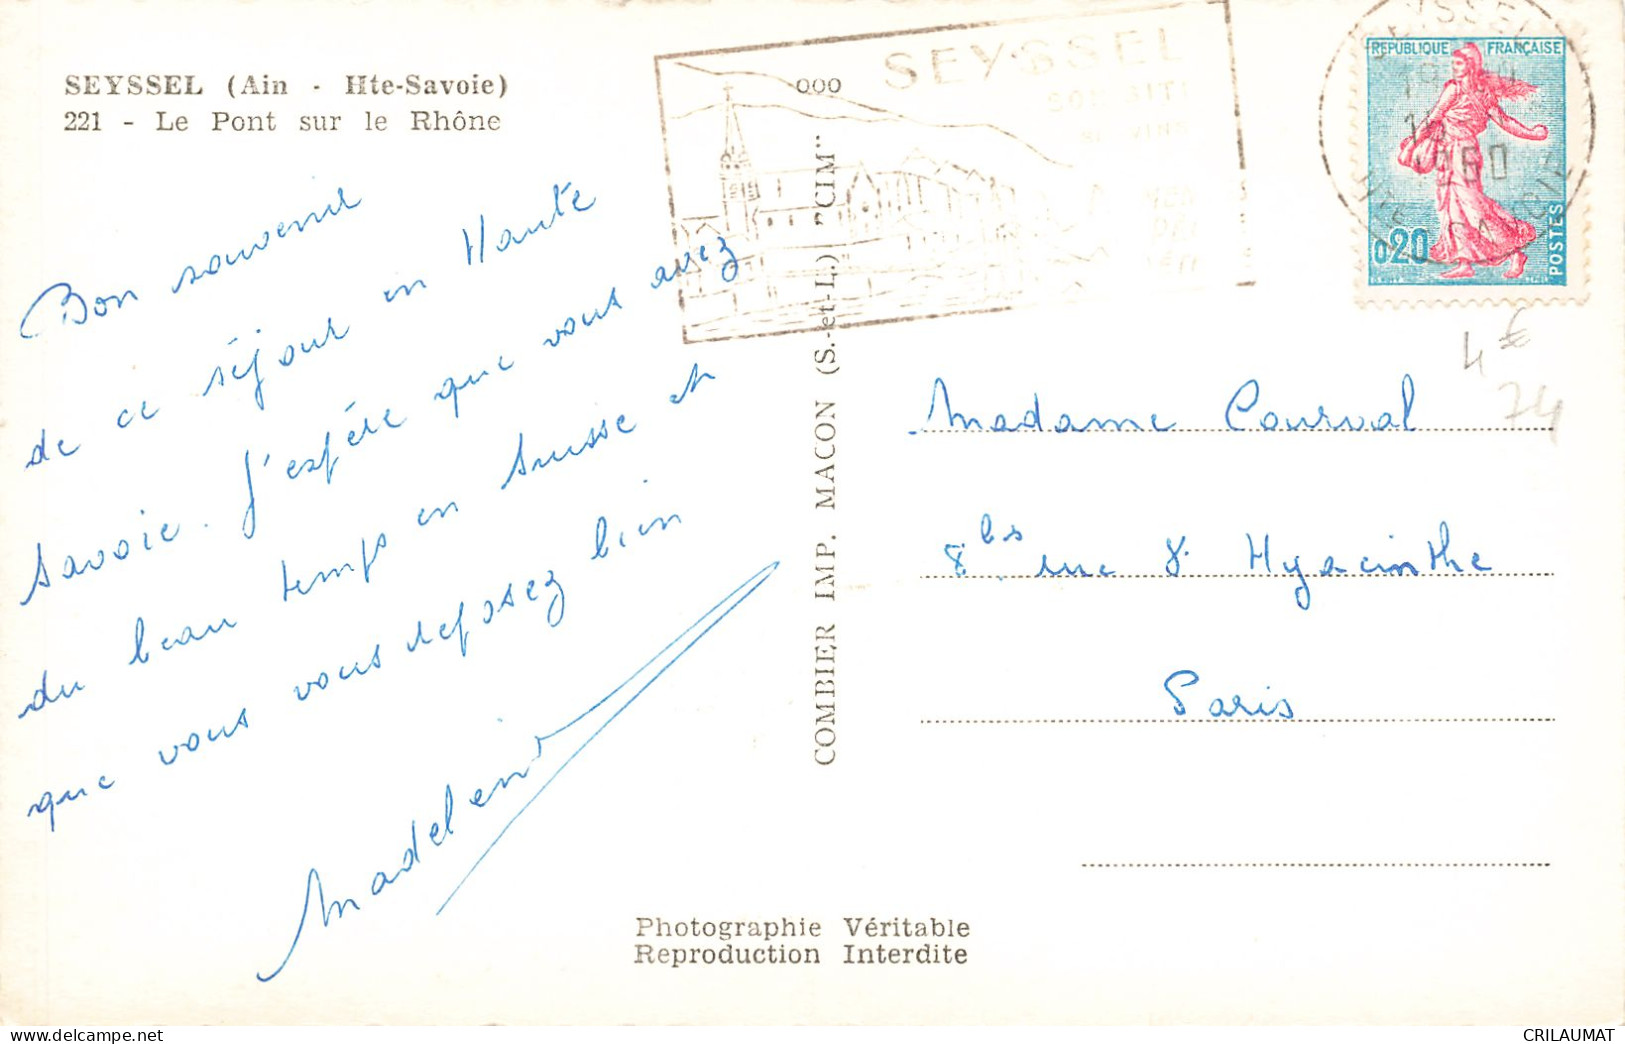 SEYSSEL (Ain - Hte-Savoie)
221 - Le Pont sur le Rhône
Bon souvenir
de ce séjour en Haute
Savoie. J'espère que vous avez
du beau temps en Suisse et
que vous vous reposez bien
Madeleine
COMBIER IMP. MACON (S.-et-L.) "CIM"
SEYSSEL
SON SITE
SES VINS
SEYSSEL
1960
HTE SAVOIE
REPUBLIQUE FRANÇAISE
0,20
POSTES
4€
74
Madame Courval
8bs rue St Hyacinthe
Paris
Photographie Véritable
Reproduction Interdite
delcampe.net
CRILAUMAT